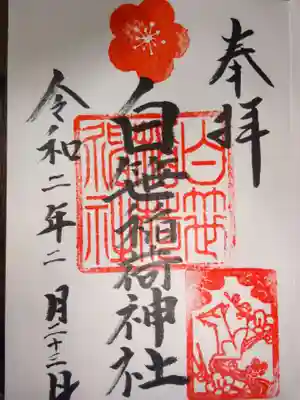 奉拝
白笹稲荷神社
令和二年二月二十二日
白笹稲荷神社